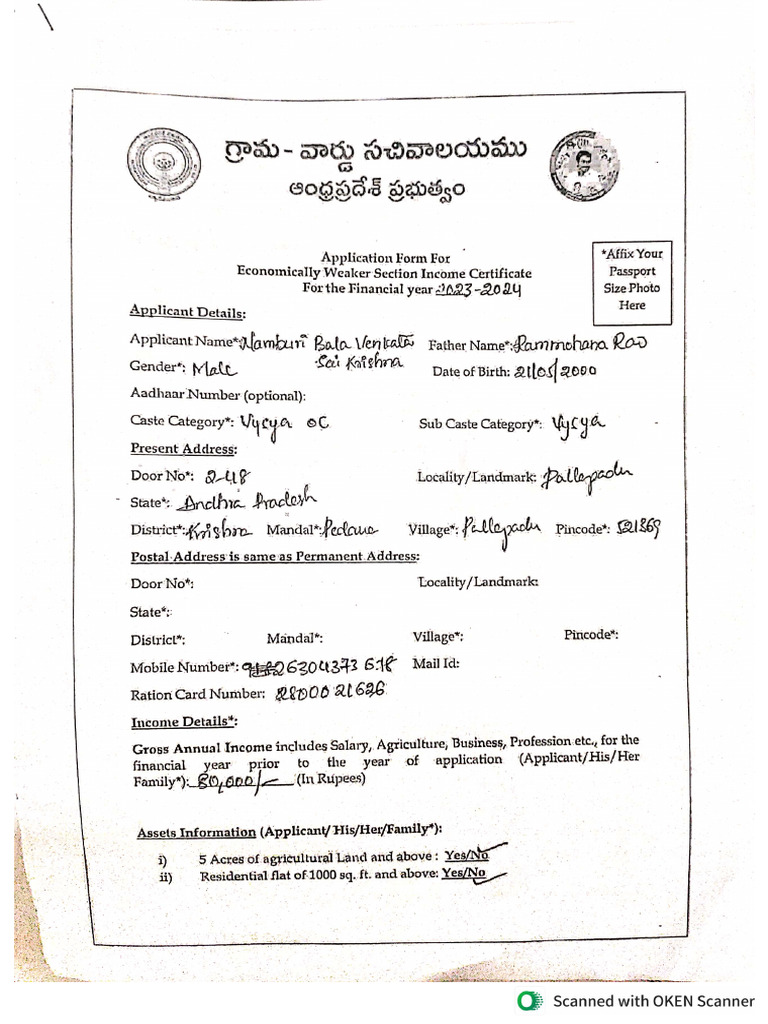 గ్రామ - వార్డు సచివాలయము
ఆంధ్రప్రదేశ్ ప్రభుత్వం
Application Form For
Economically Weaker Section Income Certificate
For the Financial year 2023-2024
*Affix Your
Passport
Size Photo
Here
Applicant Details:
Applicant Name*: Namburi Bala Venkata Father Name*: Rammohana Rao
Sai Krishna
Gender*: Male Date of Birth: 21/05/2000
Aadhaar Number (optional):
Caste Category*: Vysya OC Sub Caste Category*: Vysya
Present Address:
Door No*: 2-48 Locality/Landmark: Pallepadu
State*: Andhra Pradesh
District*: Krishna Mandal*: Pedana Village*: Pallepadu Pincode*: 521369
Postal Address is same as Permanent Address:
Door No*: Locality/Landmark:
State*:
District*: Mandal*: Village*: Pincode*:
Mobile Number*: 6304373618 Mail Id:
Ration Card Number: 2800021626
Income Details*:
Gross Annual Income includes Salary, Agriculture, Business, Profession etc., for the
financial year prior to the year of application (Applicant/His/Her
Family*): 80,000/- (In Rupees)
Assets Information (Applicant/ His/Her/Family*):
i) 5 Acres of agricultural Land and above : Yes/No
ii) Residential flat of 1000 sq. ft. and above: Yes/No
Scanned with OKEN Scanner